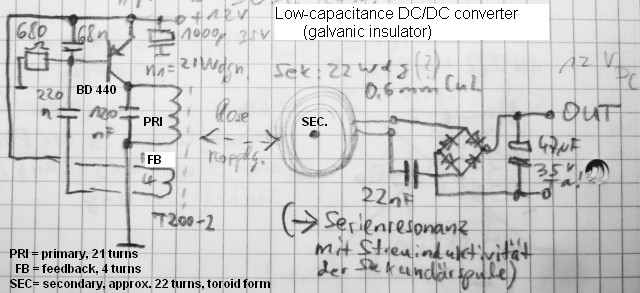 Low-capacitance DC/DC converter
(galvanic insulator)
+12V
1000µ 35V
680
68n
n1 = 21 Wdgn.
BD 440
220
n
120
nF
PRI
FB
4
T200-2
lose
Kopplg.
Sek: 22 Wdg (?)
0.6mm CuL
SEC.
12 V DC
OUT
47µF
35V
22nF
(→ Serienresonanz
mit Streuinduktivität
der Sekundärspule)
PRI = primary, 21 turns
FB = feedback, 4 turns
SEC= secondary, approx. 22 turns, toroid form